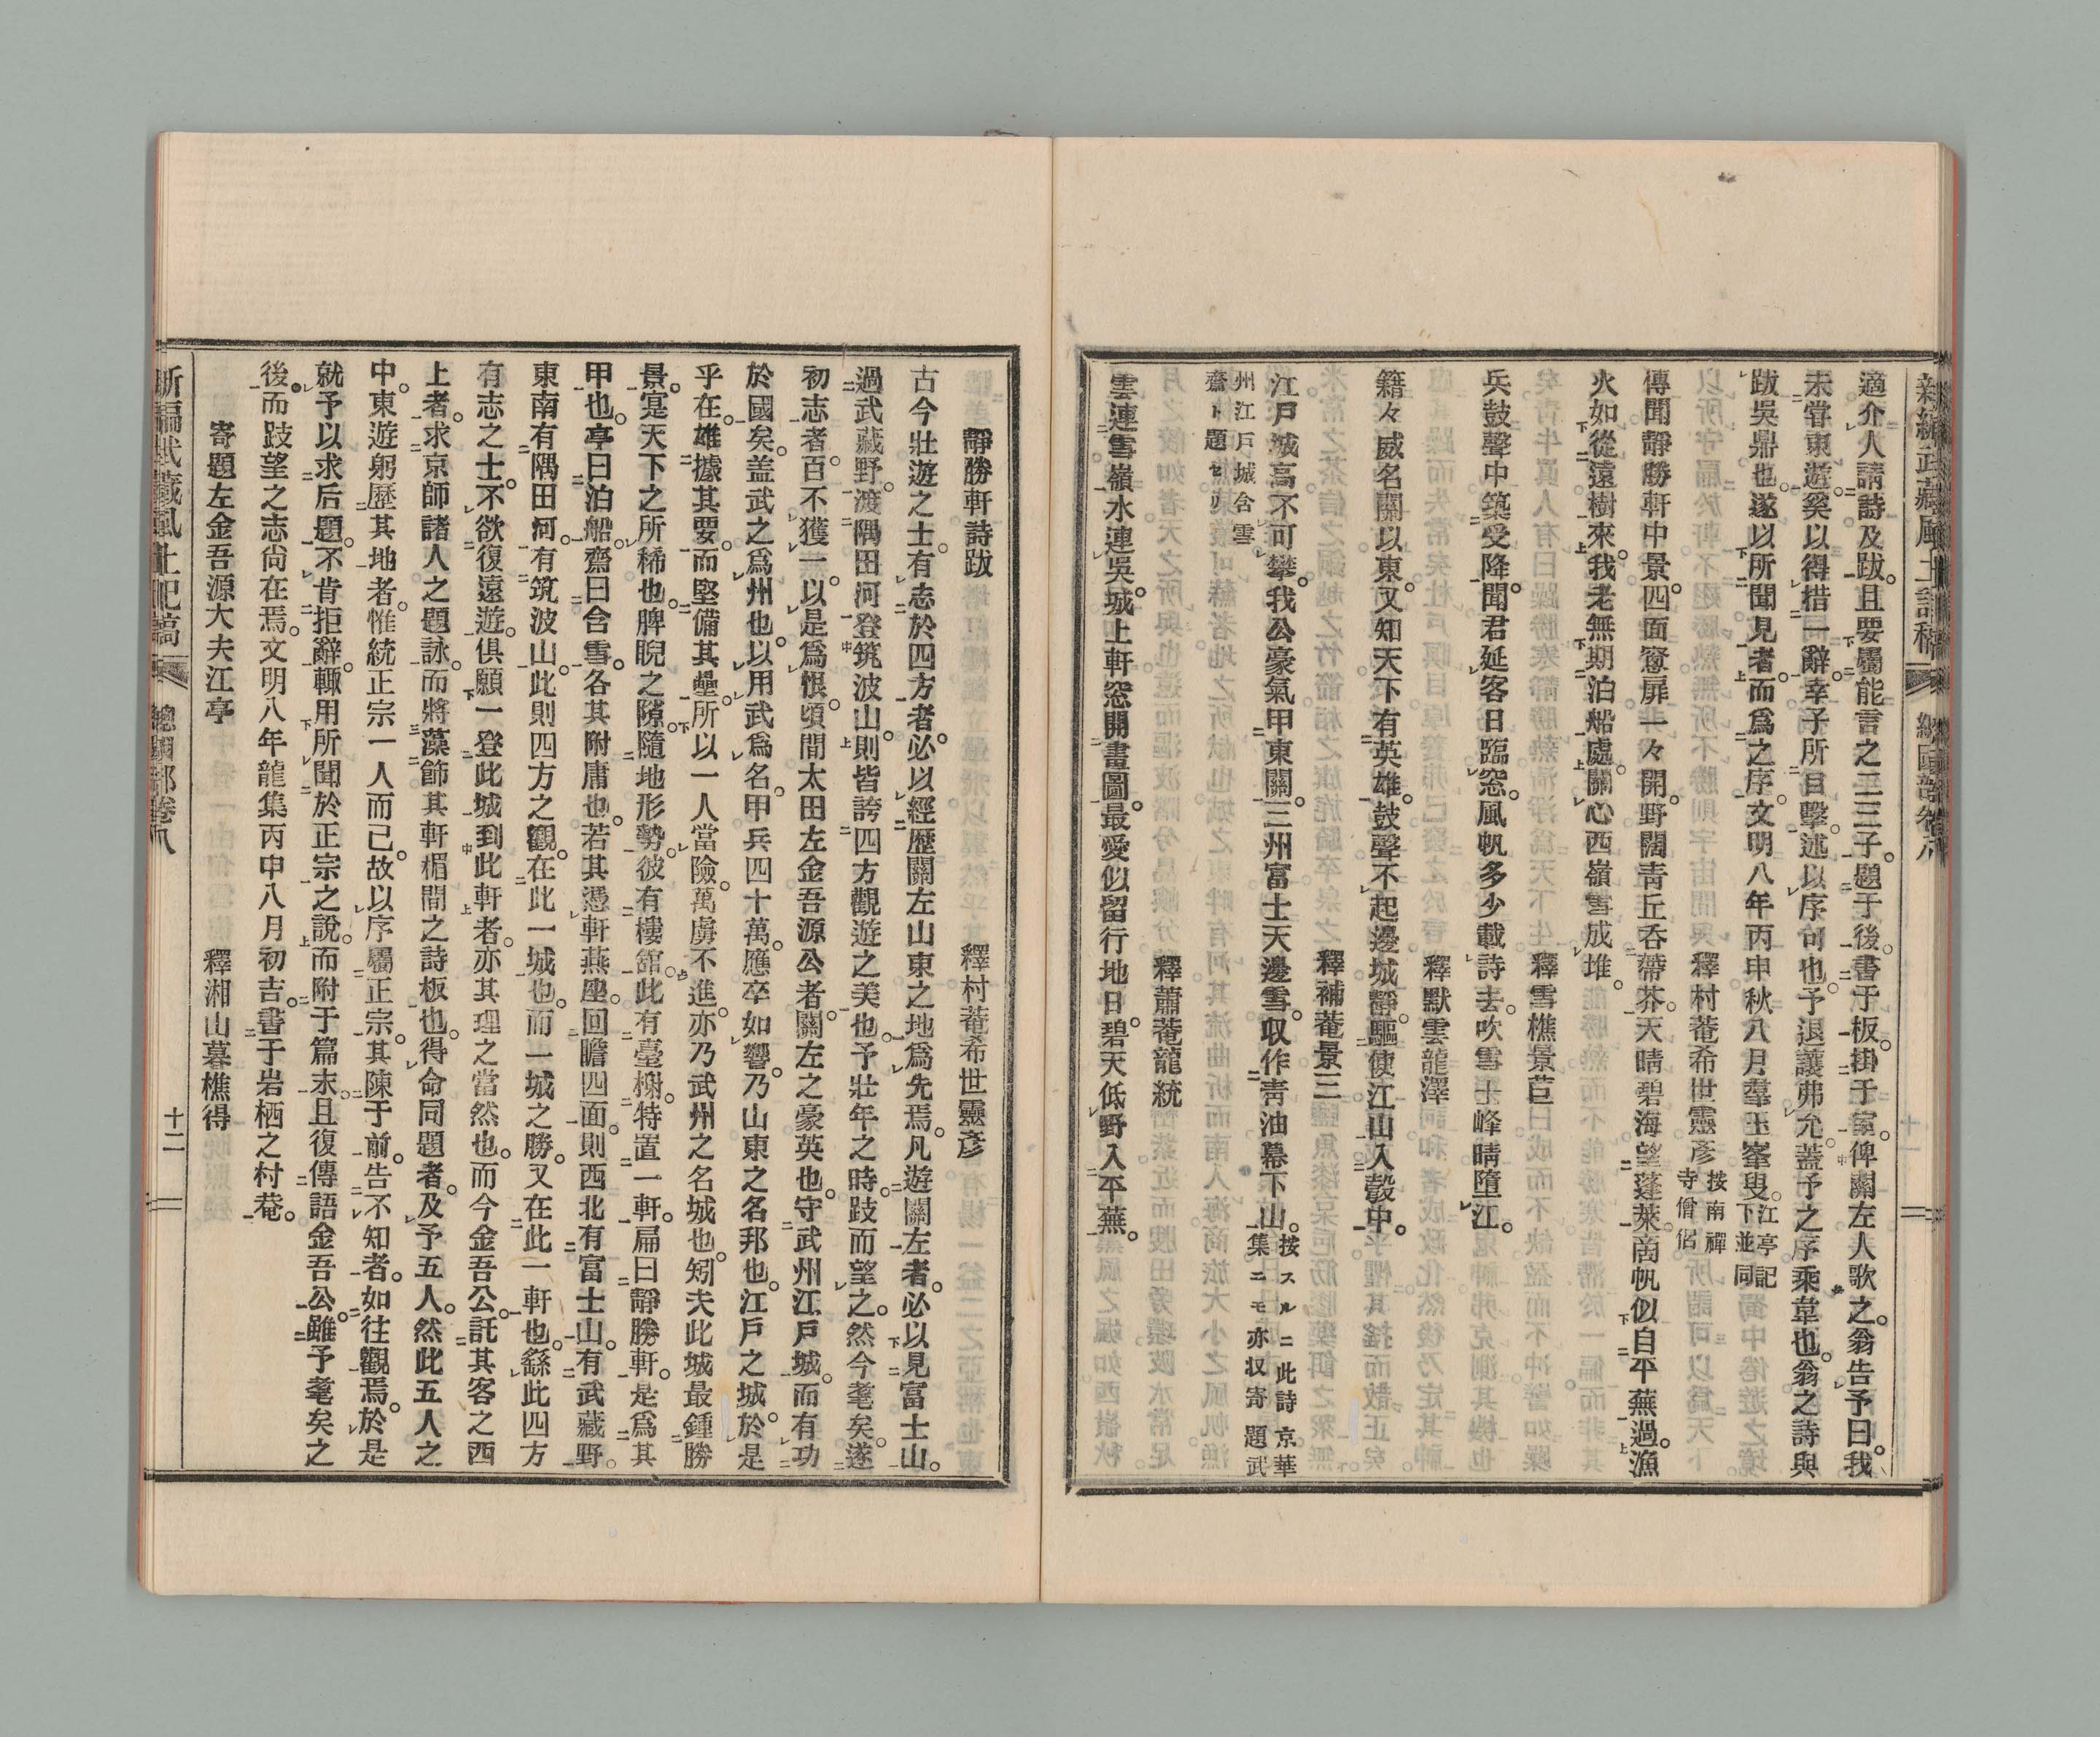 新編武藏風土記稿 總國部卷八
適介人請詩及跋。且要屬能言之二三子。題于後。書于板。掛于室。俾關左人歌之。翁告予曰。我
未甞東遊。奚以得措一辭。幸子所目擊。述以序旬也。予退讓弗允。蓋予之序乘韋也。翁之詩與
跋吳鼎也。遂以所聞見者。而爲之序。文明八年丙申秋八月羣玉峯叟。江亭記下並同
釋村菴希世靈彥 按南禪寺僧侶
傳聞靜勝軒中景。四面窻扉一々開。野闊靑丘呑蔕芥。天晴碧海望蓬萊。商帆似自平蕪過。漁
火如從遠樹來。我老無期泊船處。關心西嶺雪成堆。
釋雪樵景茝
兵鼓聲中築受降。聞君延客日臨窓。風帆多少載詩去。吹雪士峰晴墮江。
釋默雲龍澤
籍々威名關以東。又知天下有英雄。鼓聲不起邊城靜。驅使江山入彀中。
釋補菴景三
江戶城高不可攀。我公豪氣甲東關。三州富士天邊雪。収作靑油幕下山。按スルニ此詩京華集ニモ亦収寄題武
州江戶城含雪齋ト題セリ
釋蕭菴龍統
雲連雪嶺水連吳。城上軒窓開畫圖。最愛似留行地日。碧天低野入平蕪。
靜勝軒詩跋 釋村菴希世靈彥
古今壯遊之士。有志於四方者。必以經歷關左山東之地爲先焉。凡遊關左者。必以見富士山。
過武藏野。渡隅田河。登筑波山。則皆誇四方觀遊之美也。予壯年之時。跂而望之。然今耄矣。遂
初志者。百不獲一。以是爲恨。頃聞太田左金吾源公者。關左之豪英也。守武州江戶城。而有功
於國矣。盖武之爲州也。以用武爲名。甲兵四十萬。應卒如響。乃山東之名邦也。江戶之城。於是
乎在。雄據其要。而堅備其壘。所以一人當險。萬虜不進。亦乃武州之名城也。矧夫此城最鍾勝
景。寔天下之所稀也。脾睨之隙。隨地形勢。彼有樓舘。此有臺榭。特置一軒。扁曰靜勝軒。是爲其
甲也。亭曰泊船。齋曰含雪。各其附庸也。若其憑軒燕座。回瞻四面。則西北有富士山。有武藏野。
東南有隅田河。有筑波山。此則四方之觀。在此一城也。而一城之勝。又在此一軒也。繇此四方
有志之士。不欲復遠遊。俱願一登此城到此軒者。亦其理之當然也。而今金吾公。託其客之西
上者。求京師諸人之題詠。而將藻節其軒楣間之詩板也。得命同題者。及予五人。然此五人之
中。東遊躬歷其地者。惟統正宗一人而已。故以序屬正宗。其陳于前。告不知者。如往觀焉。於是
就予以求后題。不肯拒辭。輙用所聞於正宗之說。而附于篇末。且復傳語金吾公。雖予耄矣之
後。而跂望之志尙在焉。文明八年龍集丙申八月初吉。書于岩栖之村菴。
寄題左金吾源大夫江亭 釋湘山暮樵得
新編武藏風土記稿 總國部卷八 十二